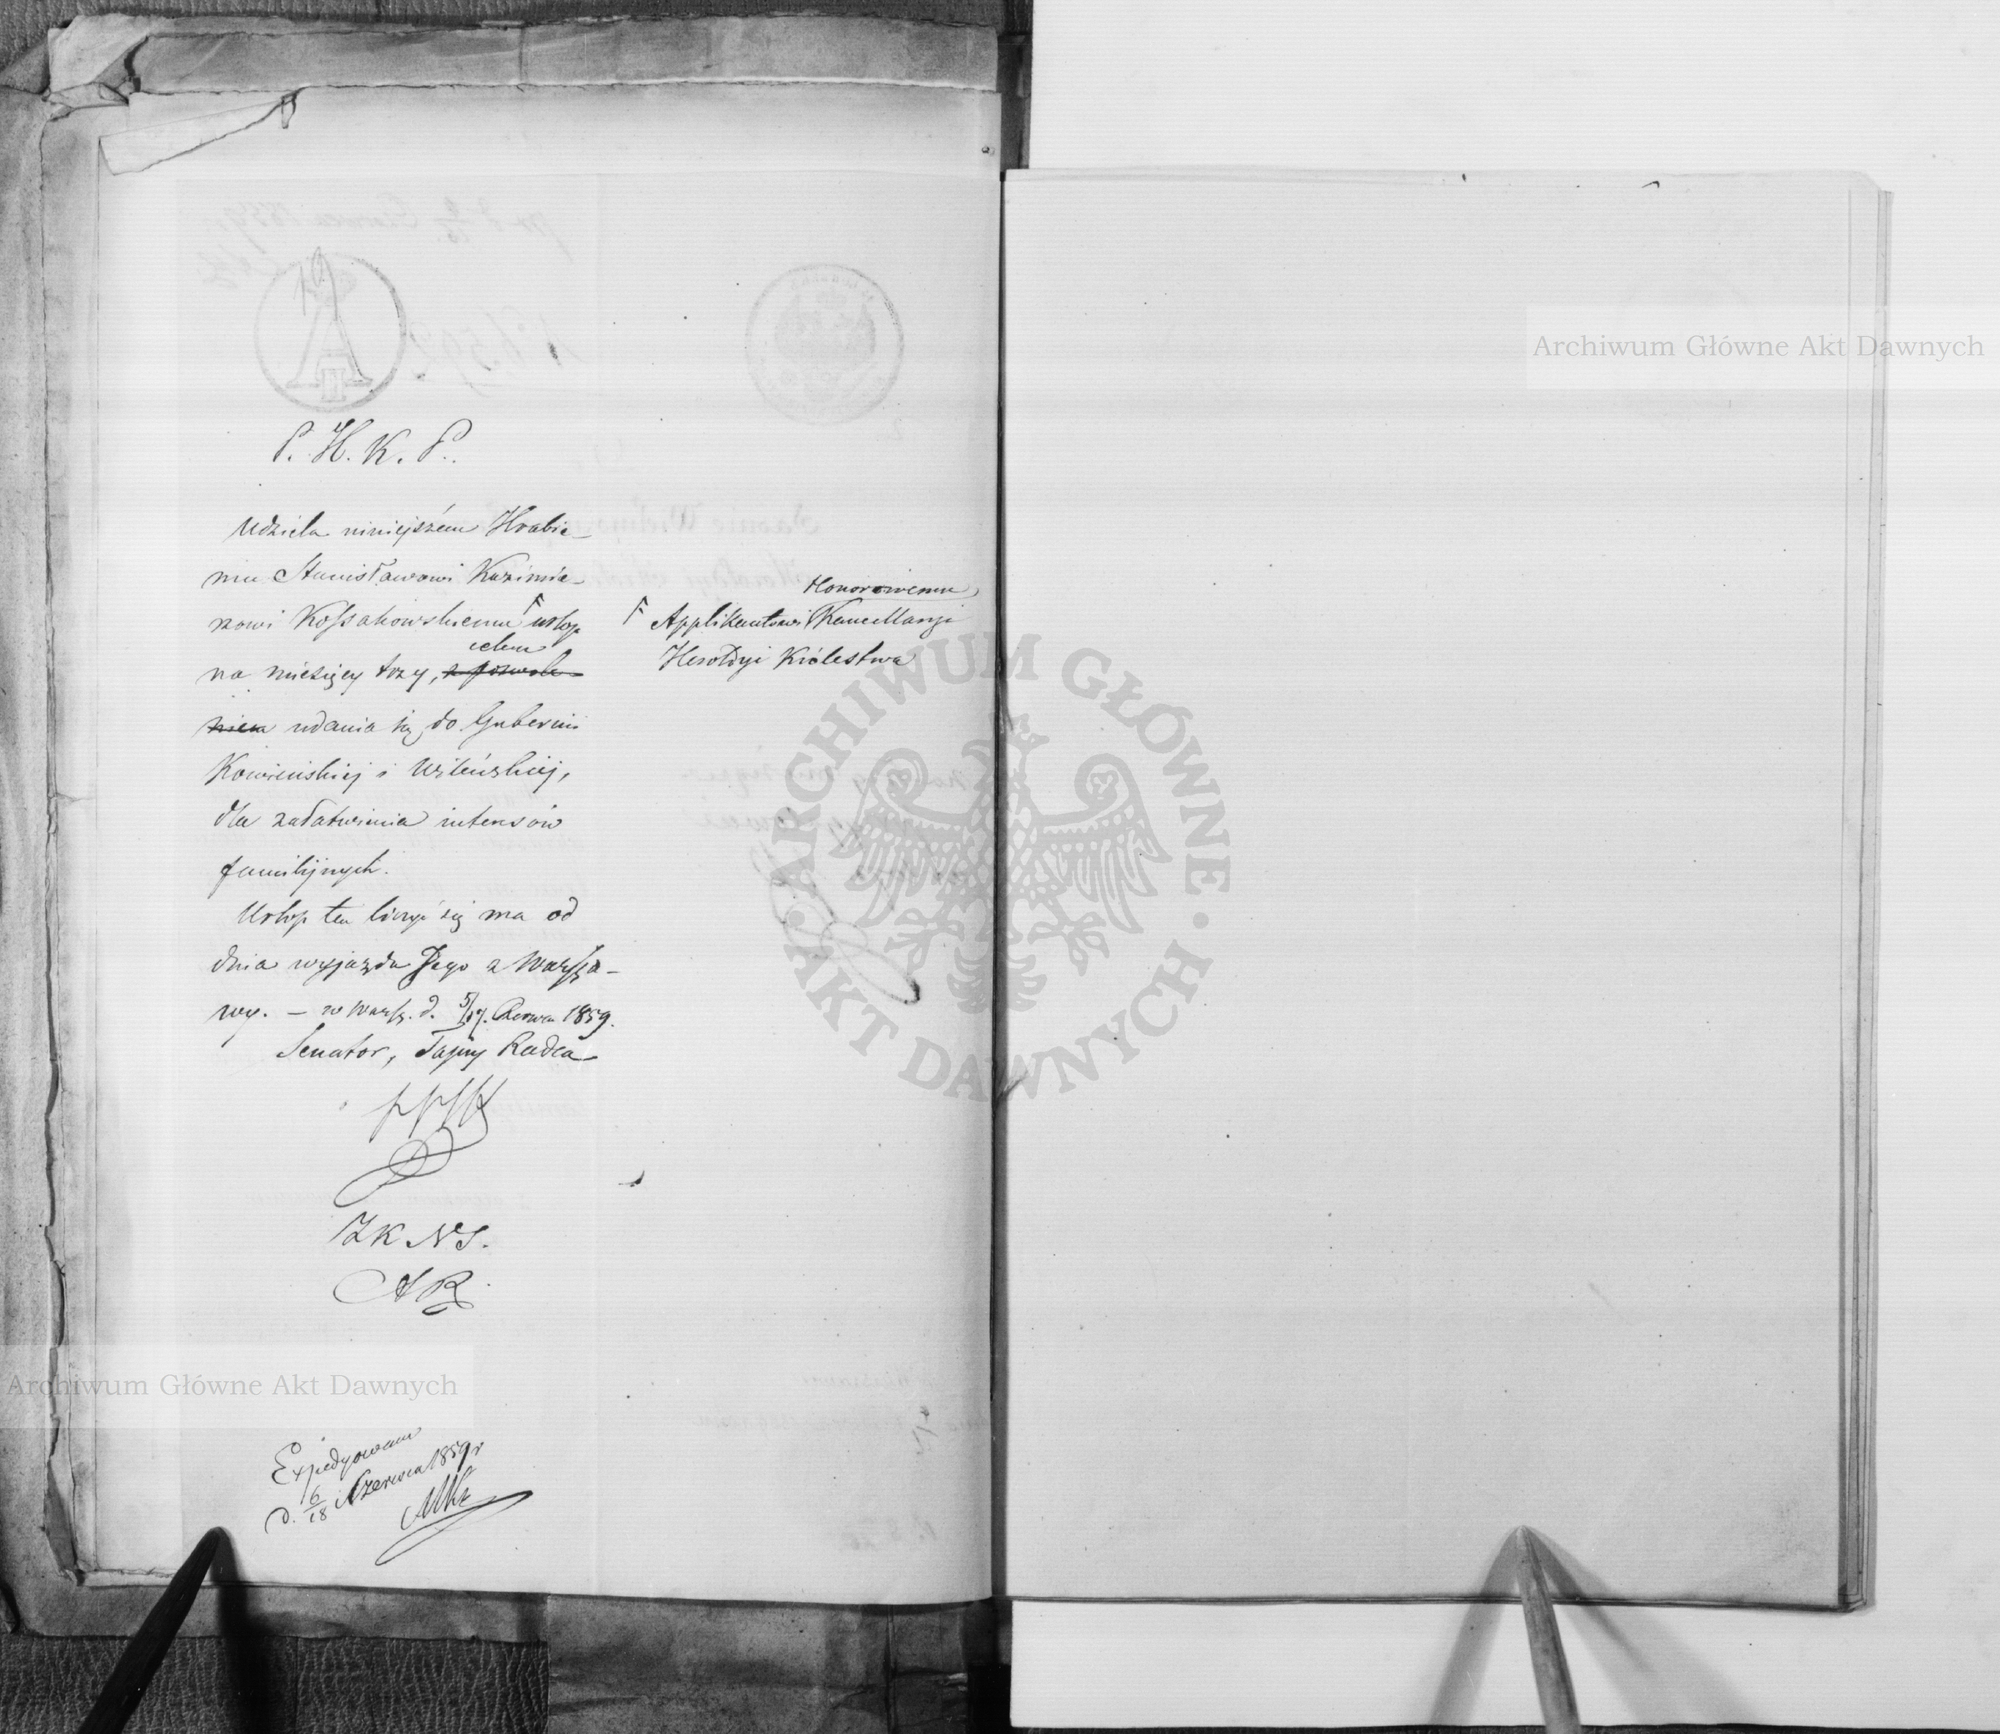 P. H. K. P.
Udziela niniejszém Hrabie-
mu Stanisławowi Kazimie-
rzowi Kossakowskiemu Γ urlop
celem
na miesięcy trzy, z pozwole-
niem udania się do Gubernii
Kowieńskiej i Wileńskiej,
dla załatwienia interesów
familijnych.
Urlop ten liczyć się ma od
dnia wyjazdu Jego z Warsza-
wy. – w Warsz. d. 5/17. Czerwca 1859.
Senator, Tajny Radca
Z K N S.
A R
Expedyowano
d. 6/18 Czerwca 1859 r
Honorowemu
Γ Applikantowi Kancellaryi
Heroldyi Królestwa
Archiwum Główne Akt Dawnych
Archiwum Główne Akt Dawnych
ARCHIWUM GŁÓWNE AKT DAWNYCH